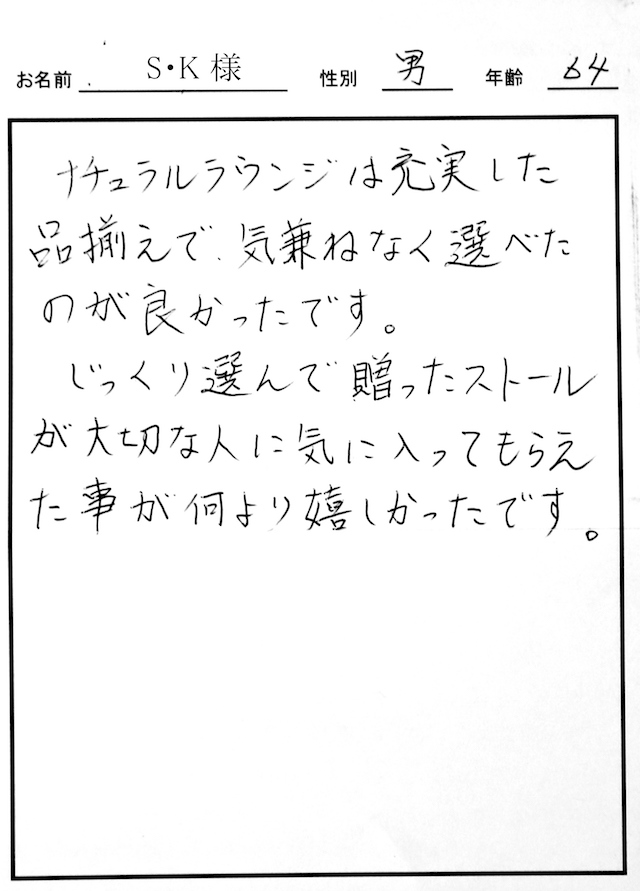 お名前 S・K様 性別 男 年齢 64
ナチュラルラウンジは充実した
品揃えで、気兼ねなく選べた
のが良かったです。
じっくり選んで贈ったストール
が大切な人に気に入ってもらえ
た事が何より嬉しかったです。